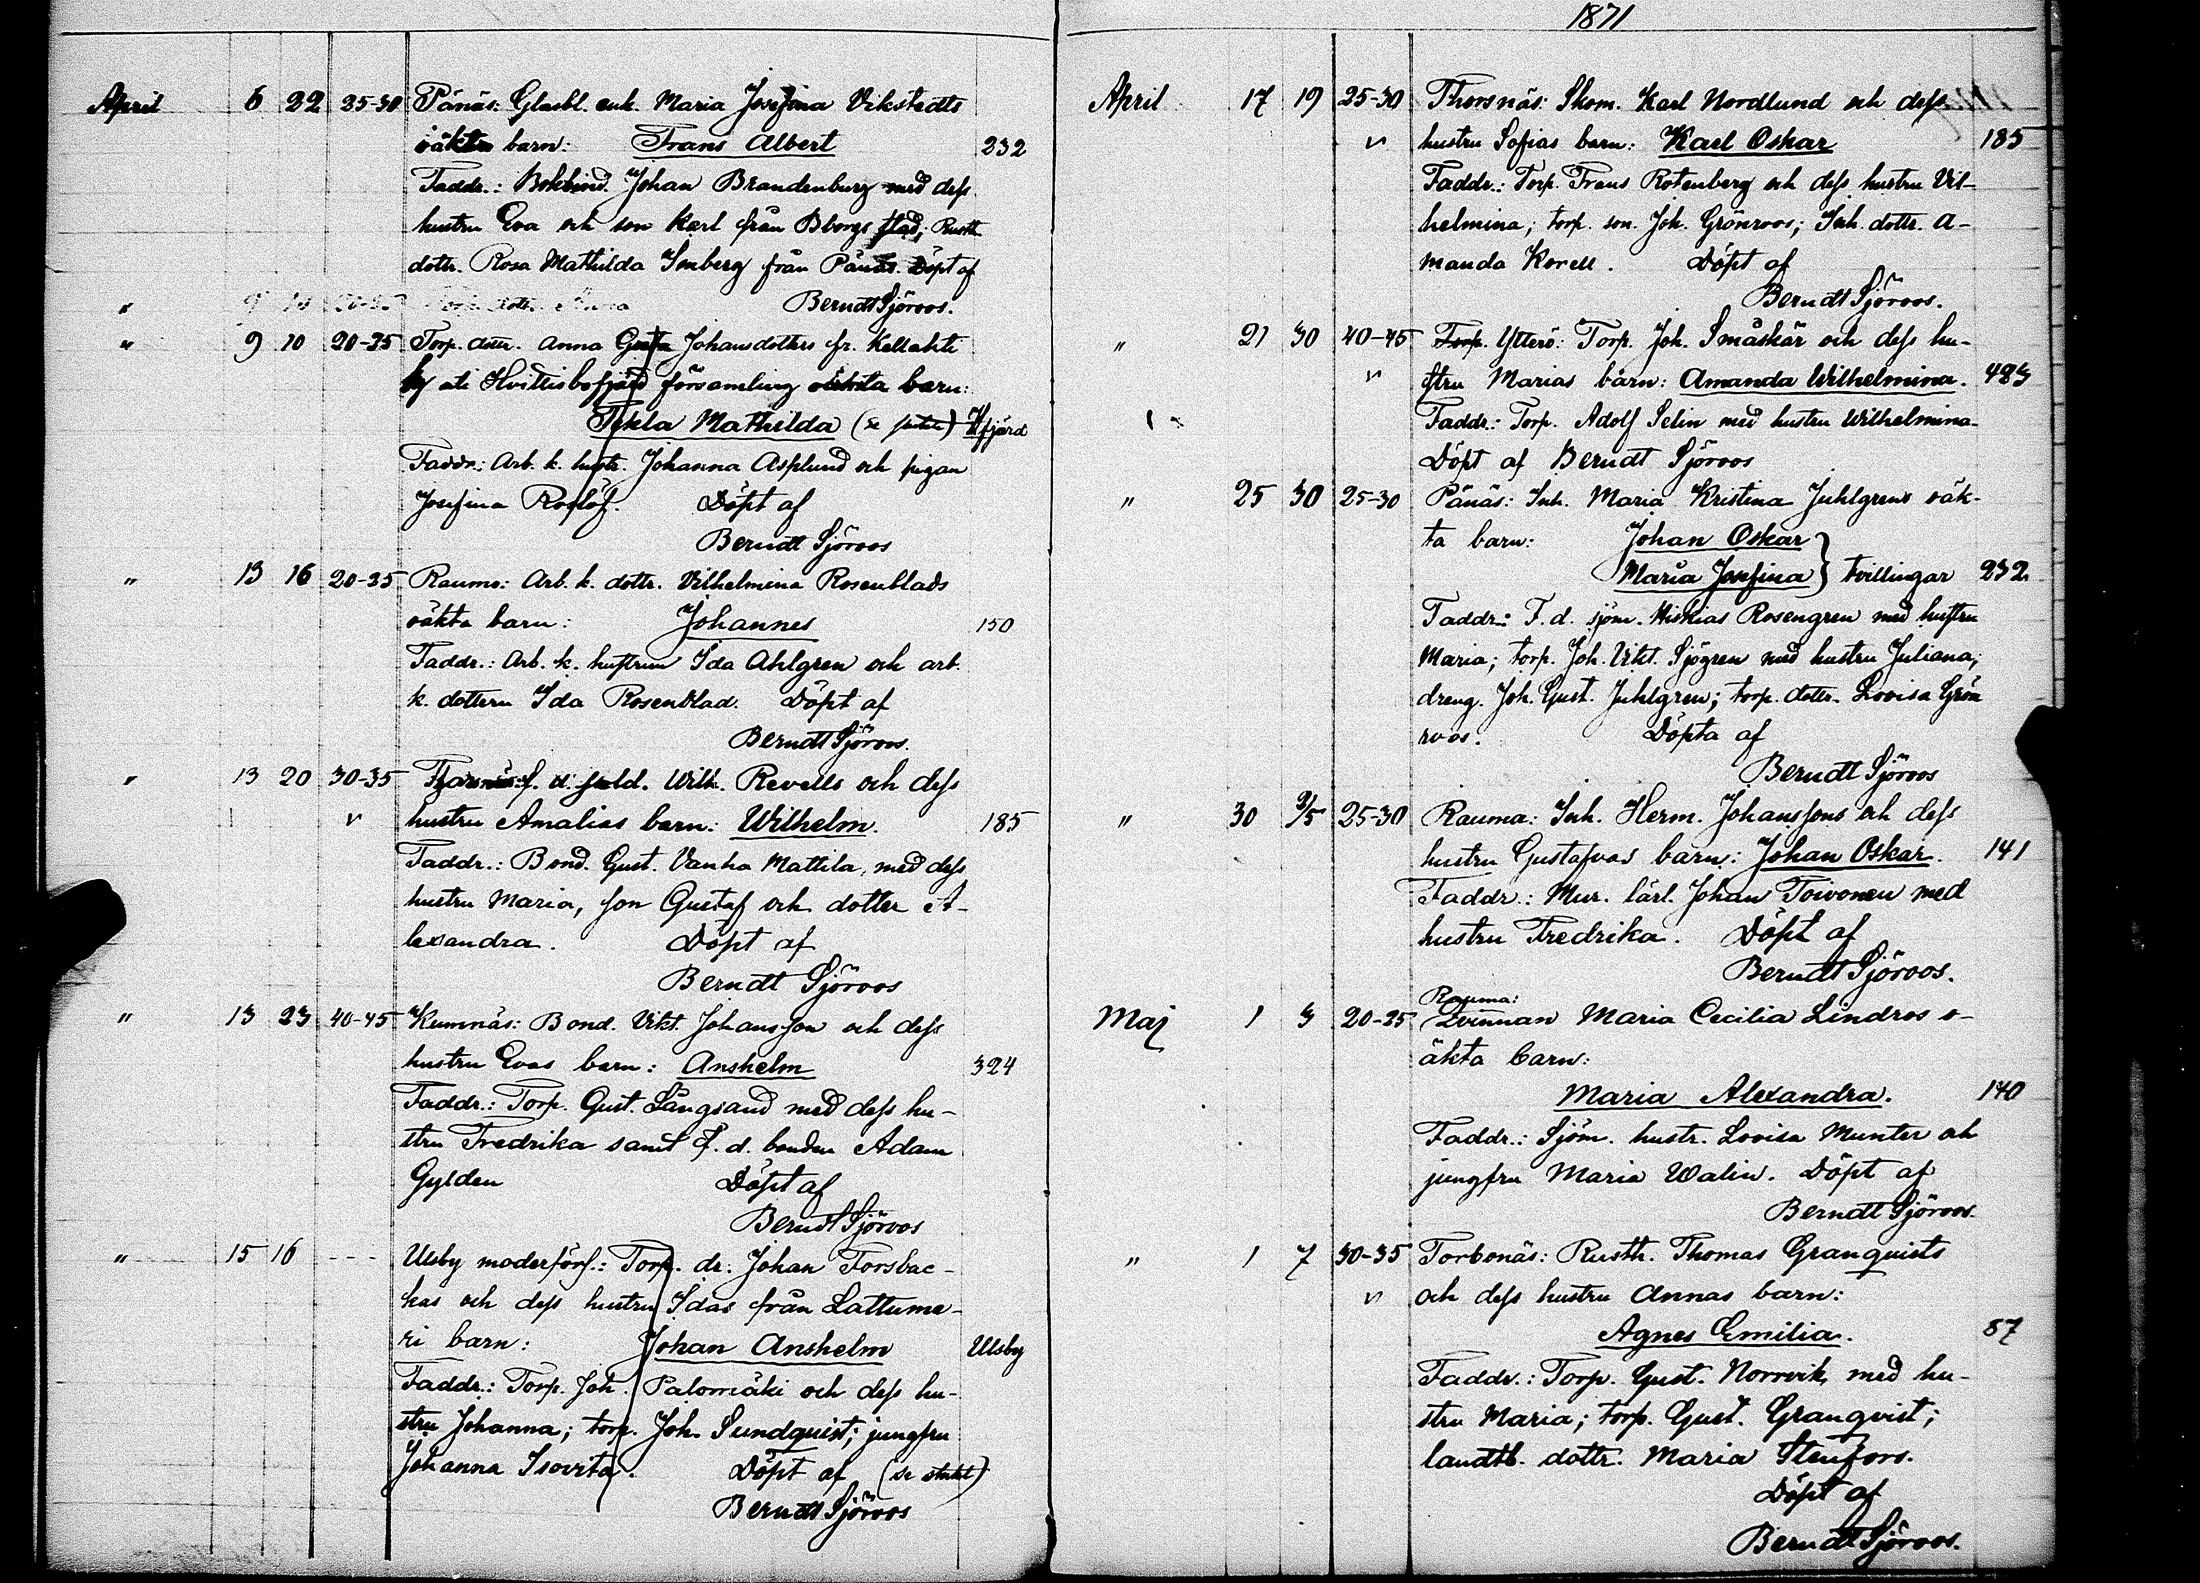 1871
April 6 22 25-30 Pänäs: Glasbl. enk. Maria Josefina Vikstedts
oäkta barn: Frans Albert 232
Faddr.: Bokbind. Johan Brandenburg med dess
hustru Eva och son Karl från Bborgs stad; Rusth.
dottr. Rosa Mathilda Senberg från Pänäs. Döpt af
" 9 10 20-25 Torp. dottr. Anna Berndt Sjöroos.
" 9 10 20-25 Torp. dottr. Anna Greta Johansdotters fr. Kellahti
by uti Hvittisbofjärd församling oäkta barn:
Tekla Mathilda (se slutet) Hfjärd
Faddr.: Arb. k. hustr. Johanna Asplund och pigan
Josefina Roslöf. Döpt af
Berndt Sjöroos
" 13 16 20-25 Raumo: Arb. k. dottr. Vilhelmina Rosenblads
oäkta barn: Johannes 150
Faddr.: Arb. k. hustrun Ida Ahlgren och arb.
k. dottern Ida Rosenblad. Döpt af
Berndt Sjöroos.
" 13 20 30-35 f. d. sold. Wilh. Revells och dess
v hustru Amalias barn: Wilhelm. 185
Faddr.: Bond. Gust. Vanha Mattila, med dess
hustru Maria, son Gustaf och dotter A-
lexandra. Döpt af
Berndt Sjöroos
" 13 23 40-45 Kumnäs: Bond. Vikt. Johansson och dess
hustru Evas barn: Anshelm 324
Faddr.: Torp. Gust. Långsand med dess hu-
stru Fredrika samt f. d. bonden Adam
Gylden Döpt af
Berndt Sjöroos
" 15 16 --- Ulsby moderförs.: Torp. dr. Johan Forsbac-
kas och dess hustru Idas från Lattume-
ri barn: Johan Anshelm Ulsby
Faddr.: Torp. Joh. Palomäki och dess hu-
stru Johanna; torp. Joh. Sundquist; jungfru
Johanna Isovita. Döpt af (se slutet)
Berndt Sjöroos
April 17 19 25-30 Thorsnäs: Skom. Karl Nordlund och dess
v hustru Sofias barn: Karl Oskar 185
Faddr.: Torp. Frans Rotenberg och dess hustru Vil-
helmina; torp. son. Joh. Grönroos; Inh. dottr. A-
manda Korell. Döpt af
Berndt Sjöroos.
" 21 30 40-45 Torp. Ytterö: Torp. Joh. Småskär och dess hu-
v stru Marias barn: Amanda Wilhelmina. 483
Faddr.: Torp. Adolf Selin med hustru Wilhelmina
Döpt af Berndt Sjöroos
" 25 30 25-30 Pänäs: Inh. Maria Kristina Juhlgrens oäk-
ta barn: Johan Oskar
Maria Josefina } tvillingar 232
Faddr.: F. d. sjöm. Hiskias Rosengren med hustru
Maria; torp. Joh. Vikt. Sjögren med hustru Juliana;
dreng. Joh. Gust. Juhlgren; torp. dottr. Lovisa Grön
roos. Döpta af
Berndt Sjöroos
" 30 3/5 25-30 Rauma: Inh. Herm. Johanssons och dess
hustru Gustafvas barn: Johan Oskar. 141
Faddr.: Mur. lärl. Johan Toivonen med
hustru Fredrika. Döpt af
Berndt Sjöroos.
Rauma:
Maj 1 3 20-25 Qvinnan Maria Cecilia Lindros o-
äkta barn:
Maria Alexandra. 140
Faddr.: Sjöm. hustr. Lovisa Munter och
jungfru Maria Walin. Döpt af
Berndt Sjöroos.
" 1 7 30-35 Torbonäs: Rusth. Thomas Granquists
v och dess hustru Annas barn:
Agnes Emilia. 87
Faddr.: Torp. Gust. Norrvik, med hu-
stru Maria; torp. Gust. Granqvist;
landtb. dottr. Maria Stenfors.
Döpt af
Berndt Sjöroos.